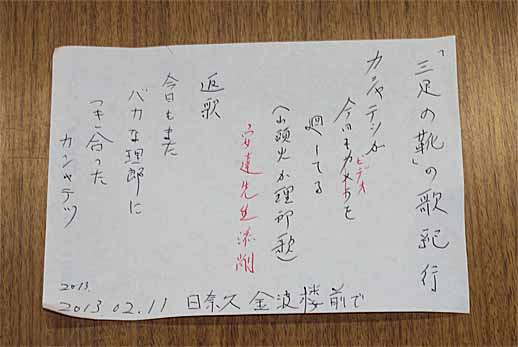 「三足の靴」の歌紀行
カンシャテツが
今日もカメラを
ビデオ
廻してる
(山頭火か理郎歌)
安達先生添削
返歌
今日もまた
バカな理郎に
つき合った
カンシャテツ
2013.
2013.02.11 日奈久 金波楼前で